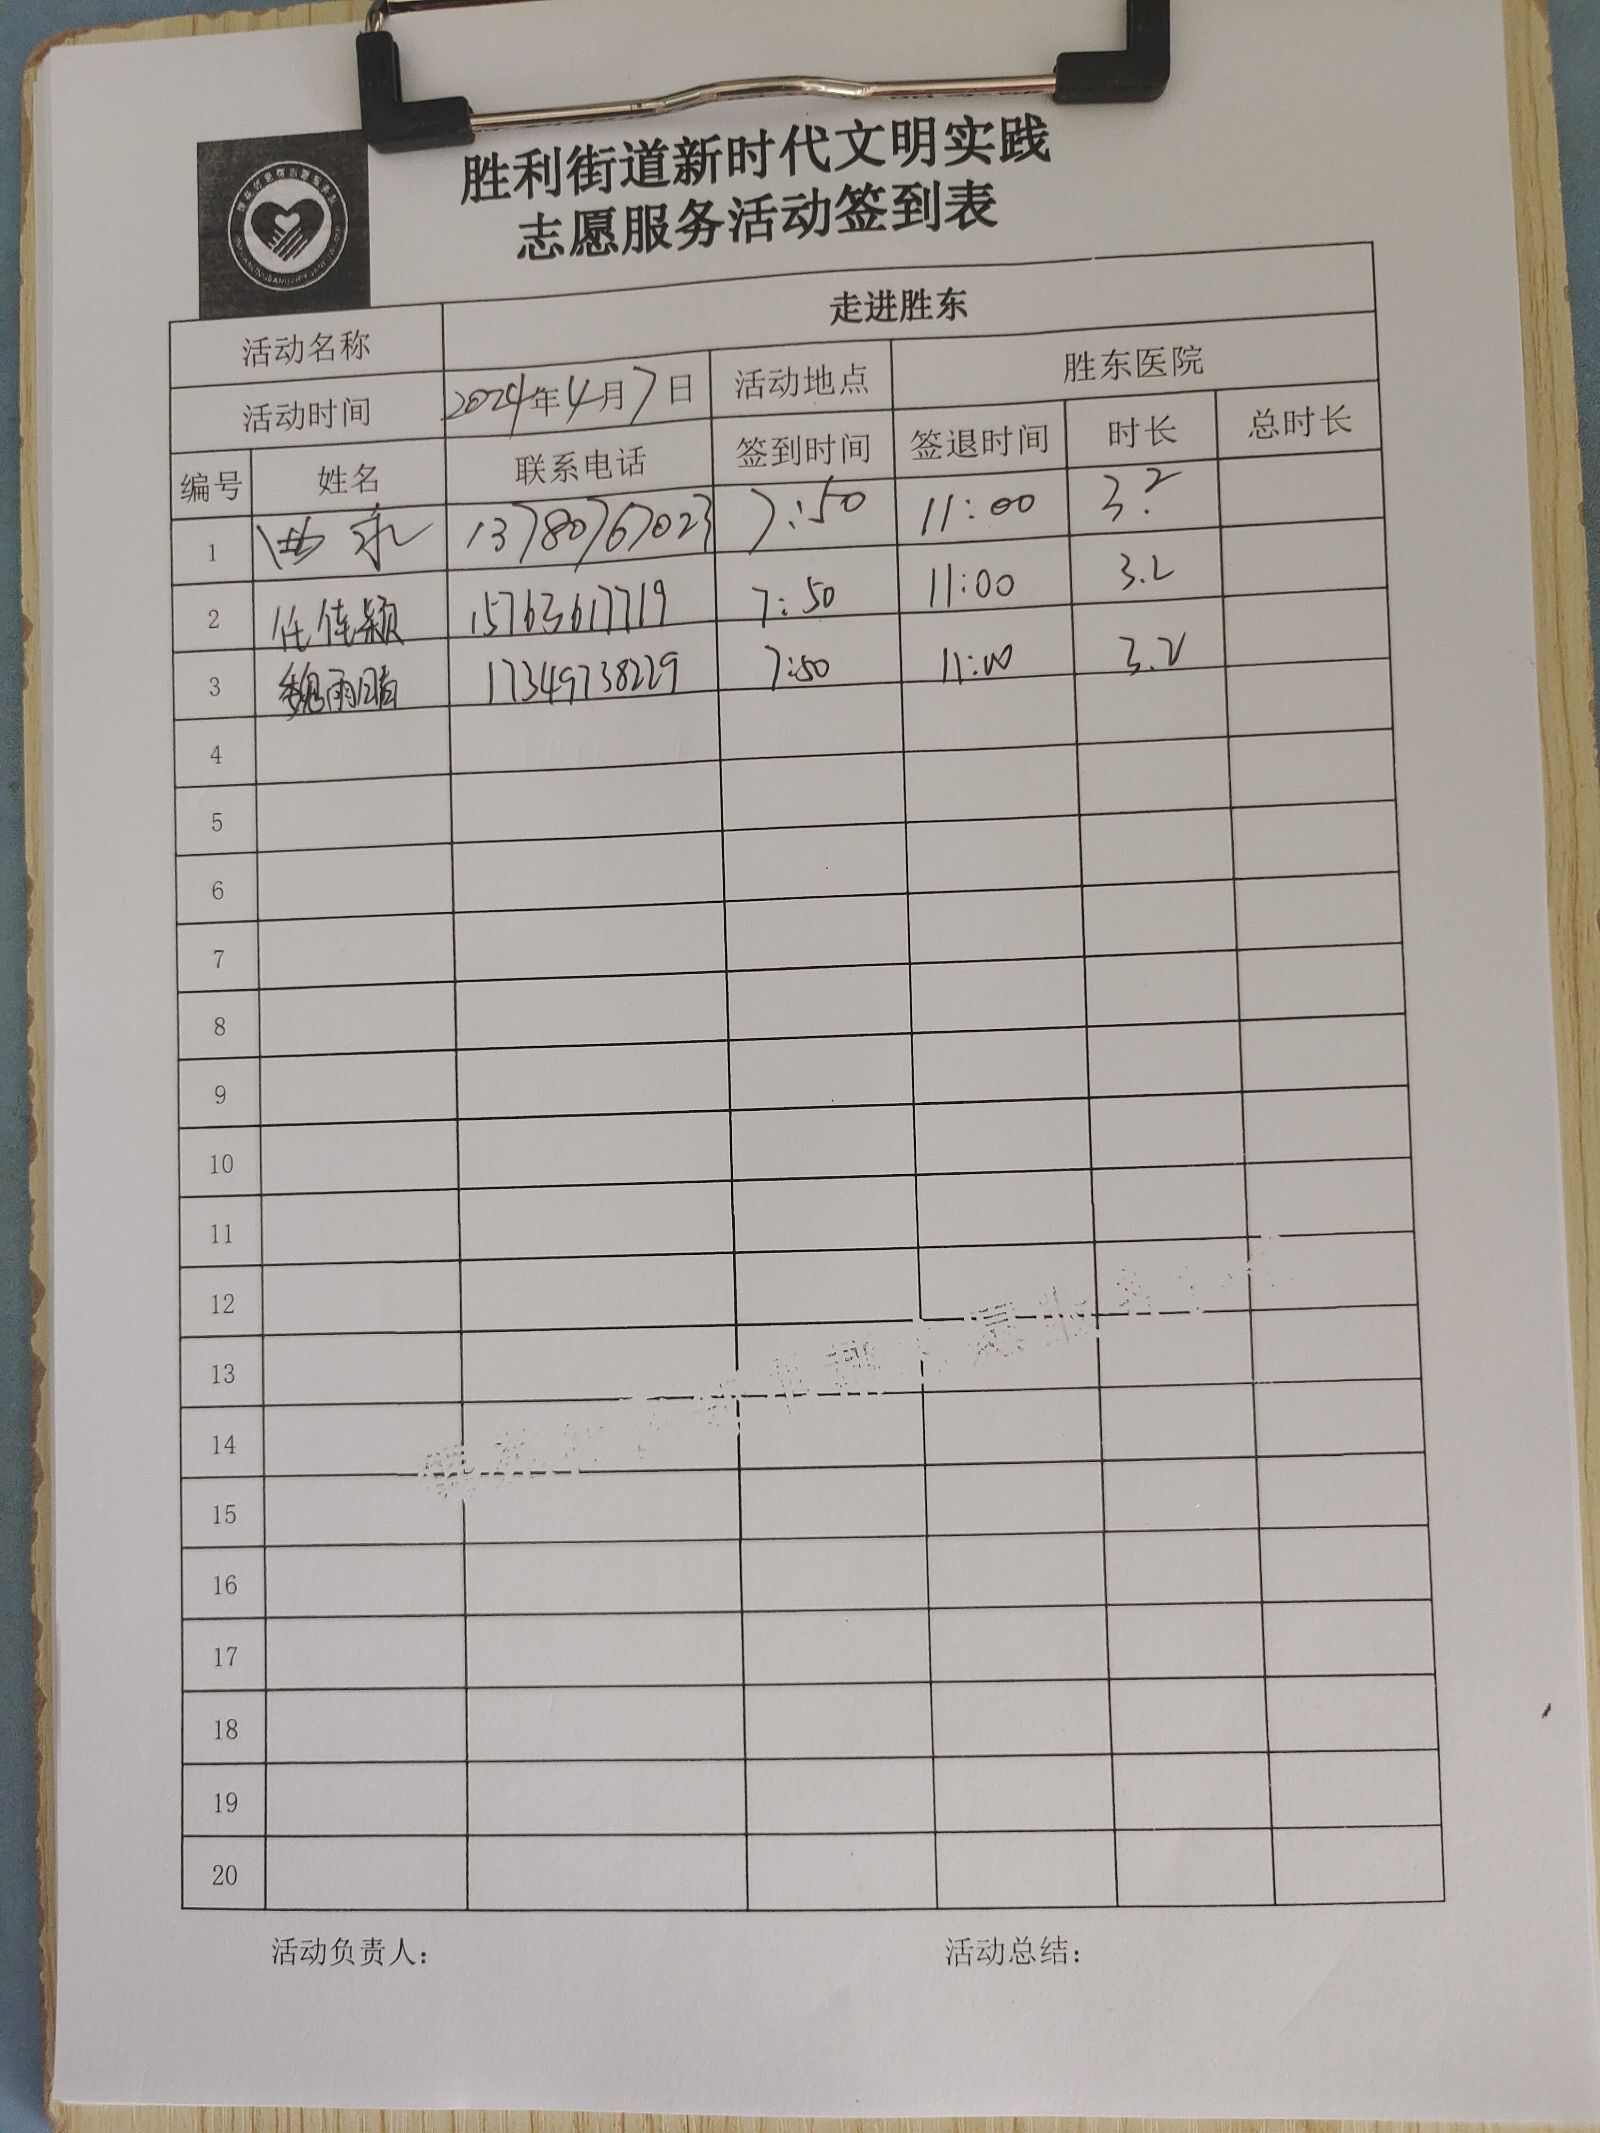 胜利街道新时代文明实践
志愿服务活动签到表
活动名称 走进胜东
活动时间 2024年4月7日 活动地点 胜东医院
编号 姓名 联系电话 签到时间 签退时间 时长 总时长
1 13780767023 7:50 11:00 3.2
2 任佳颖 15763617719 7:50 11:00 3.2
3 魏雨晴 17349738229 7:50 11:00 3.2
4
5
6
7
8
9
10
11
12
13
14
15
16
17
18
19
20
活动负责人： 活动总结：